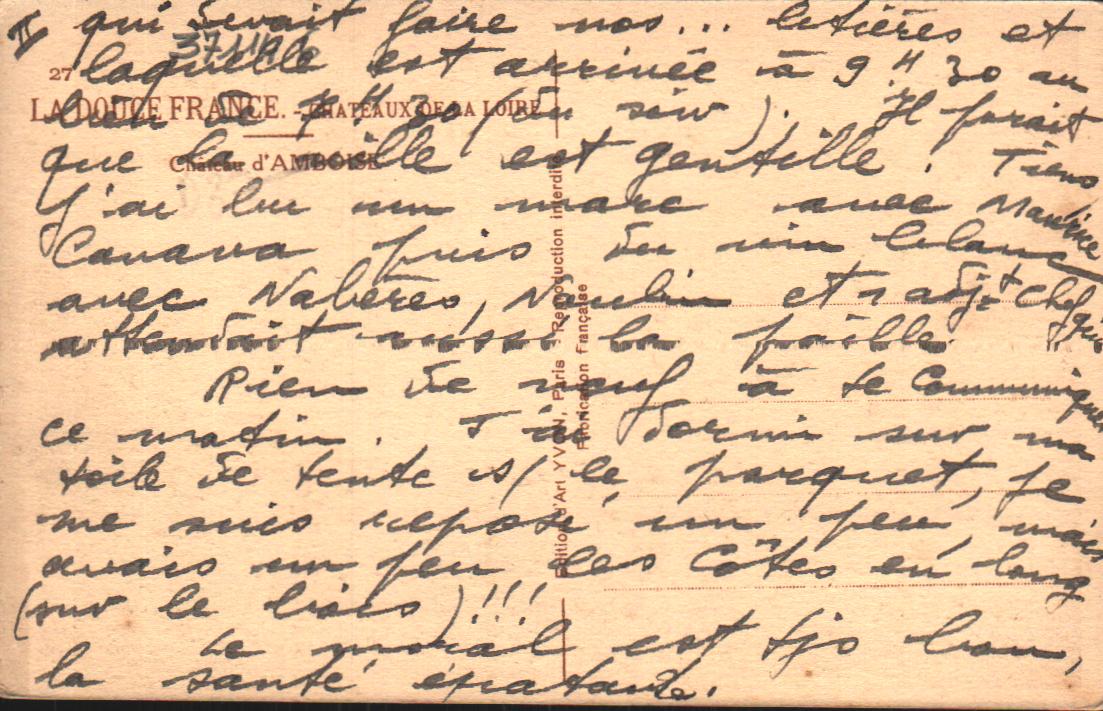 II qui devait faire nos... litières et
laquelle est arrivée à 9 H 30 au
lieu de H 30 du soir). Il parait
que la paille est gentille. Tiens
j'ai bu un marc avec Maurice
Canava puis du vin blanc
avec Nabères, et 1 adjt chef qui
attendait aussi la paille.
Rien de neuf à te communiquer
ce matin. J'ai dormi sur ma
toile de tente s/ le parquet, je
me suis reposé un peu, mais
avais un peu les côtes en long
(sur le bois)!!!
Le moral est tjs bon,
la santé épatante.
27
LA DOUCE FRANCE. - CHATEAUX DE LA LOIRE
Château d'AMBOISE
Edition d'Art YVON, Paris - Reproduction interdite
Fabrication Française